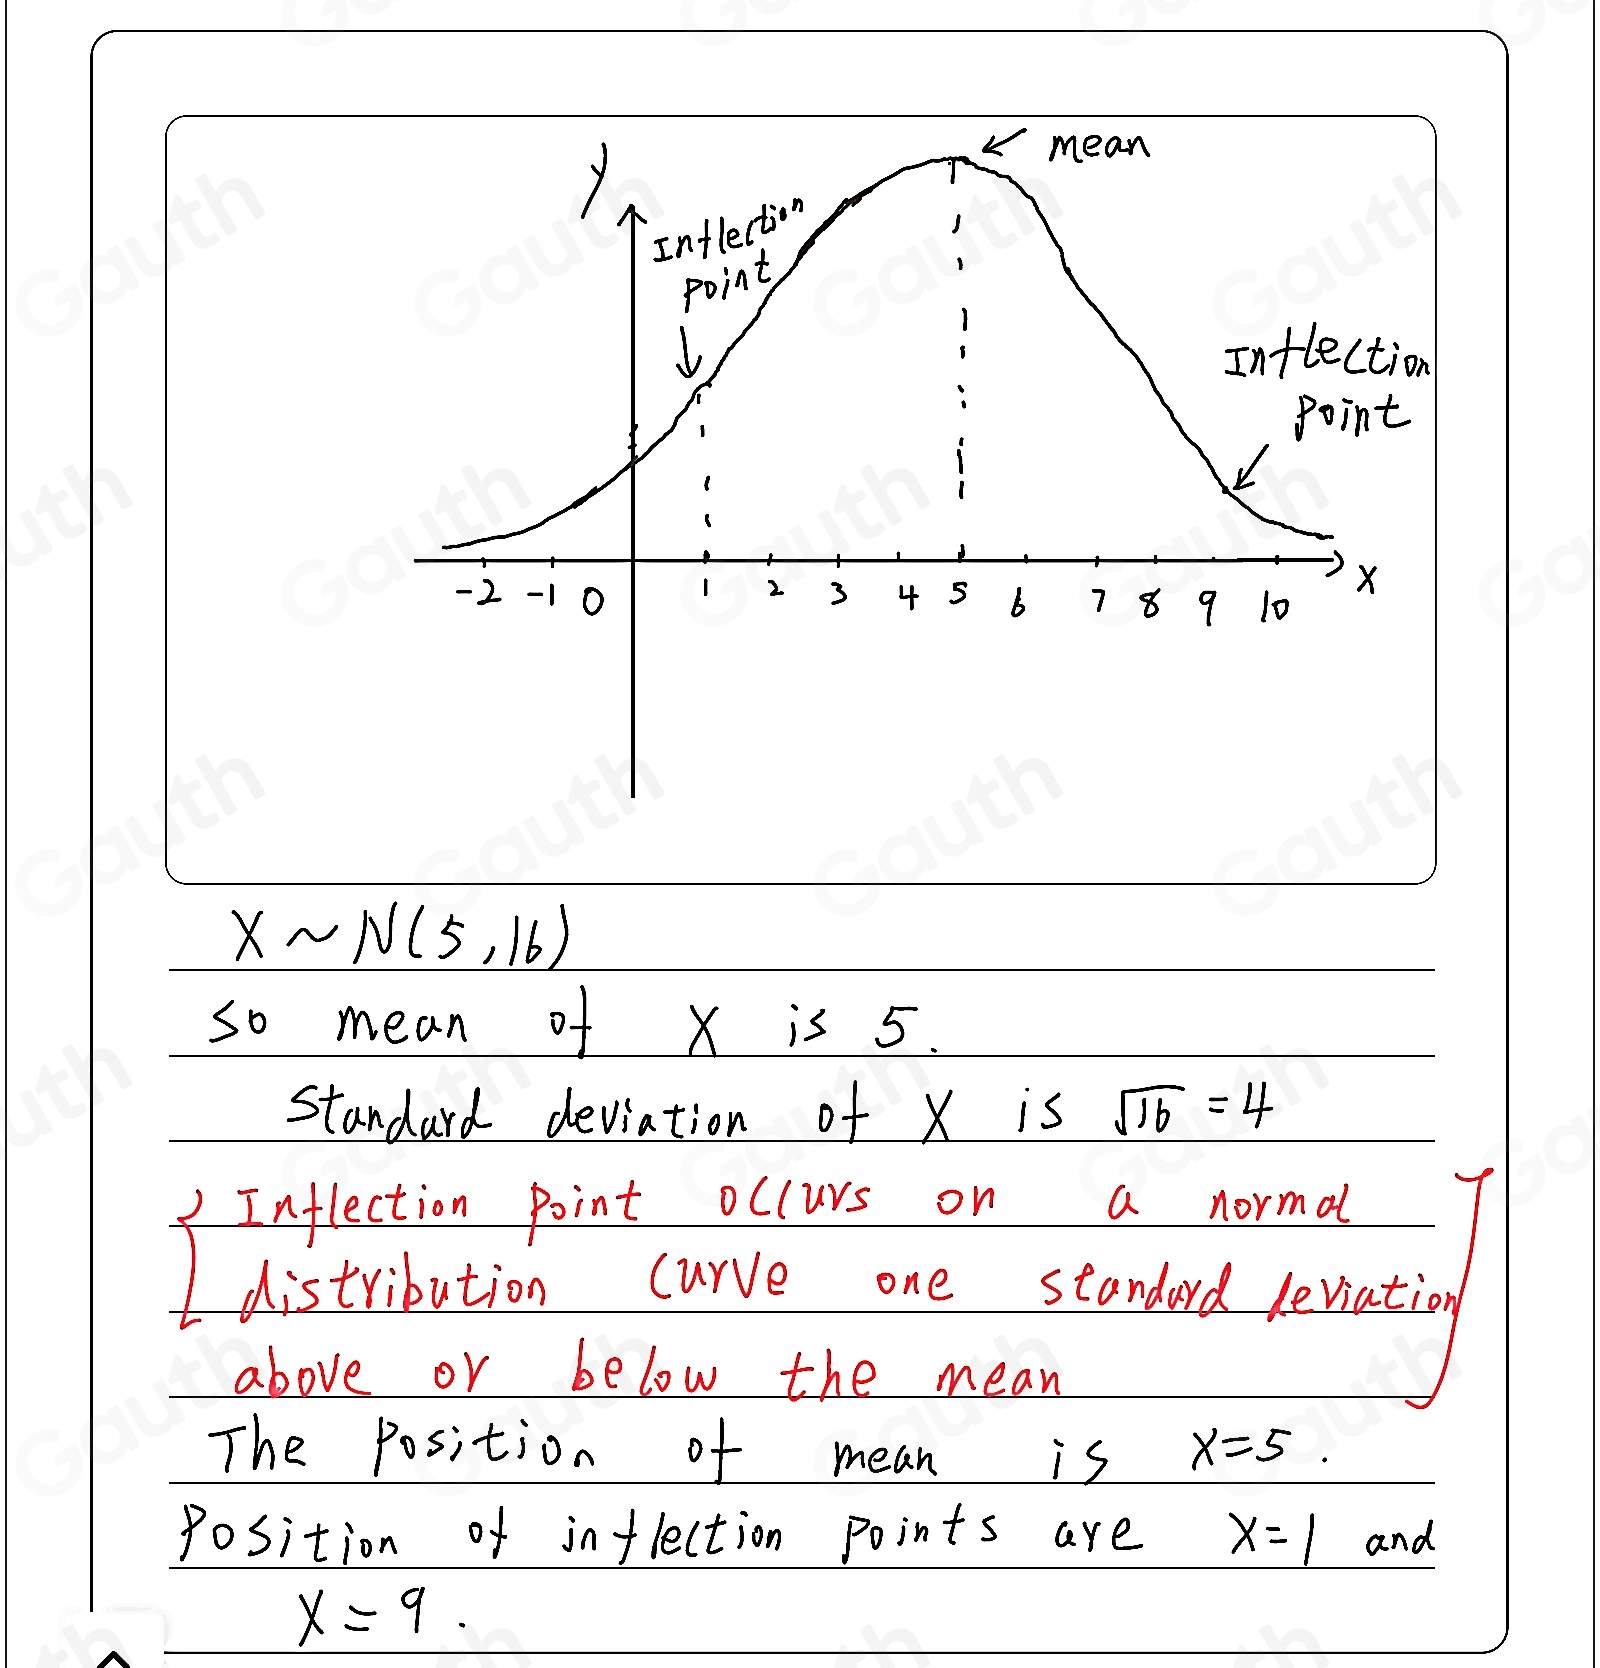 y
mean
Inflection
point
Inflection
point
-2 -1 0 1 2 3 4 5 6 7 8 9 10 x
X ~ N(5,16)
so mean of X is 5.
Standard deviation of X is √16 = 4
{ Inflection point occurs on a normal
distribution curve one standard deviation
above or below the mean ]
The position of mean is X=5.
Position of inflection points are X=1 and
X=9.
Gauth